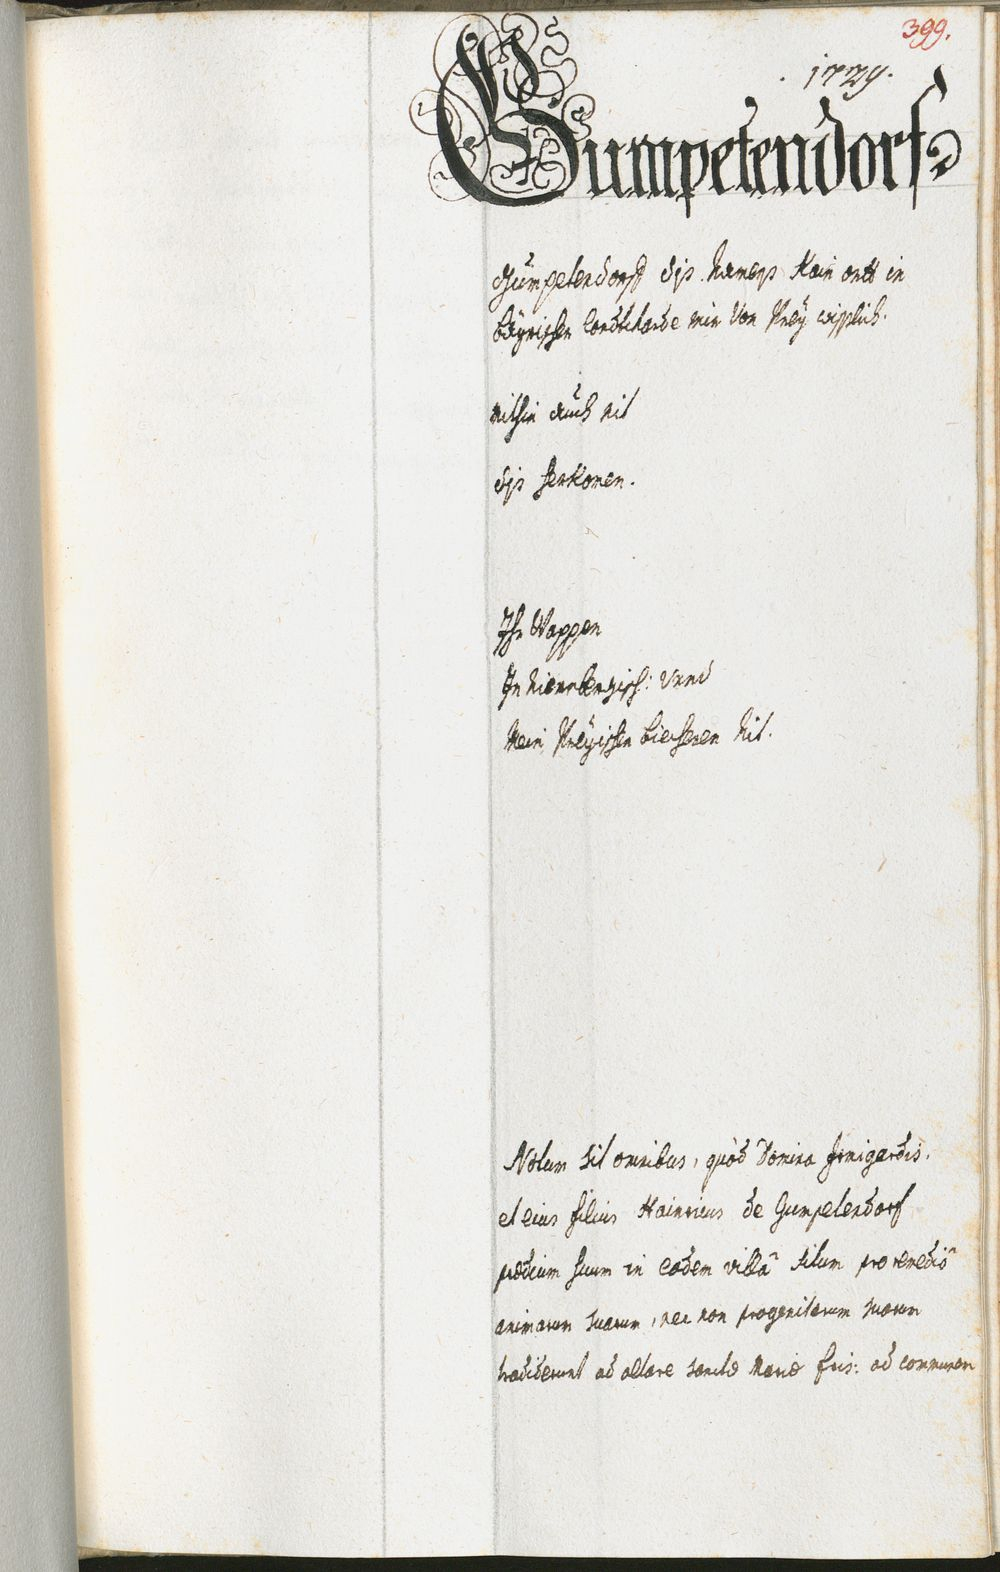 399.
1729.
Gumpetendorf
Gumpetendorff dis Namens Kain ortt in
bayrischen Landtcharde mir von Prey wisslich.
mithin auch nit
dis herkomen.
Ihr Wappen
In Nirnbergisch: Vnnd
Mein Preyischen biecheren Nit.
Notum sit omnibus, quòd Domina Irmigardis,
et eius filius Hainricus de Gumpetendorf
prædium suum in eodem villâ situm pro remediô
animarum suarum, nec non progenitorum suorum
tradiderunt ad altare sanctæ Mariæ Fris: ad communem